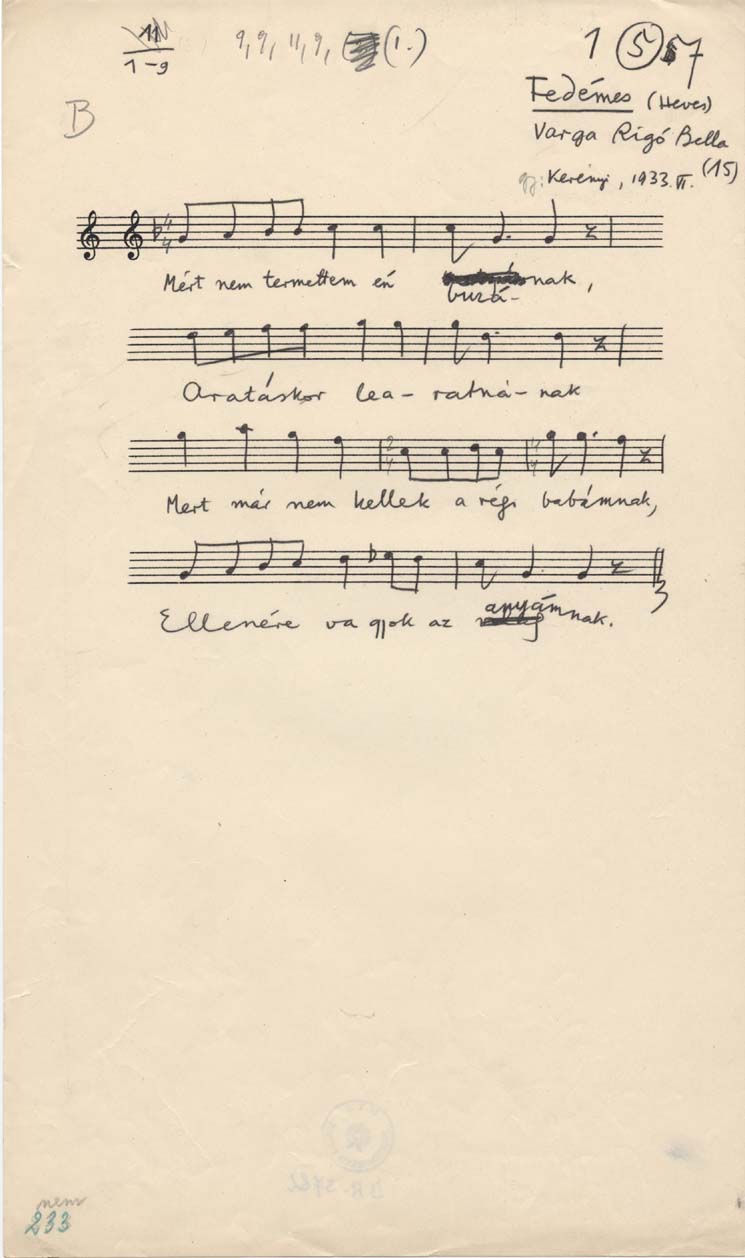 11
1-9
9, 9, 11, 9, (1.)
1 5 7
Fedémes (Heves)
Varga Rigó Bella
(15)
gy: Kerényi, 1933. VI.
B
4/4
Mért nem termettem én buzá-nak,
Aratáskor lea- ratná- nak
2/4 4/4
Mert már nem kellek a régi babámnak,
Ellenére vagyok az anyámnak.
nem
233